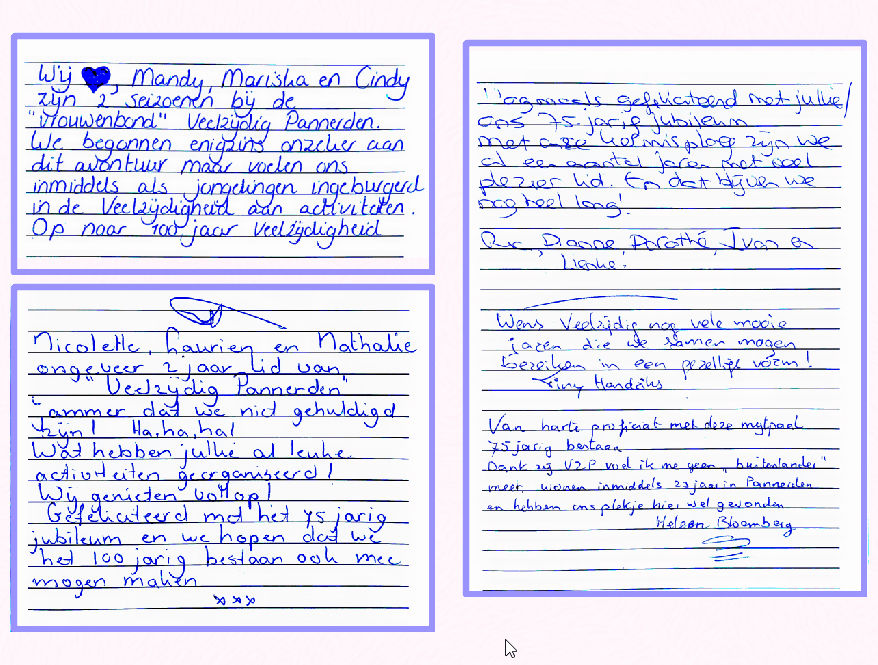 Wij , Mandy, Mariska en Cindy
zijn 2 seizoenen bij de
"Vrouwenbond" Veelzijdig Pannerden.
We begonnen enigzins onzeker aan
dit avontuur maar voelen ons
inmiddels als jongelingen ingeburgerd
in de Veelzijdigheid aan activiteiten.
Op naar 100 jaar Veelzijdigheid
Nicolette, Laurien en Nathalie
ongeveer 2 jaar lid van
"Veelzijdig Pannerden"
Jammer dat we niet gehuldigd
zijn! Ha, ha, ha!
Wat hebben jullie al leuke
activiteiten georganiseerd!
Wij genieten volop!
Gefeliciteerd met het 75 jarig
jubileum en we hopen dat we
het 100 jarig bestaan ook mee
mogen maken
xxx
gefeliciteerd met jullie/
ons 75-jarig jubileum
met onze kermisploeg zijn we
al een aantal jaren met veel
plezier lid. En dat blijven we
nog heel lang!
Dianne, Dorothé, Ivon en
Lienke.
Wens Veelzijdig nog vele mooie
jaren die we samen mogen
bereiken in een gezellige vorm!
Tiny Hendriks
Van harte proficiat met deze mijlpaal
75 jarig bestaan
Dank zij VZP voel ik me geen "buitenlander"
meer, wonen inmiddels 23 jaar in Pannerden
en hebben ons plekje hier wel gevonden
Heleen Bloemberg